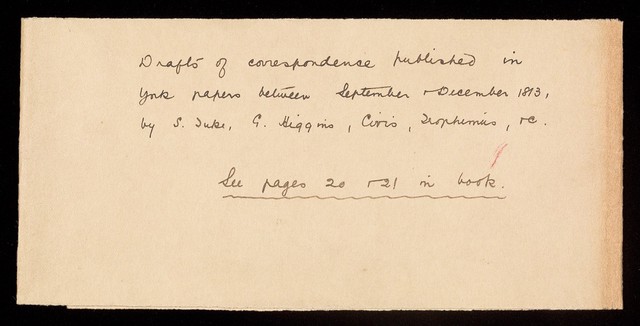 Drafts of correspondence published in
York papers between September & December 1813,
by S. Tuke, G. Higgins, Civis, Trophimus, &c.
See pages 20 & 21 in book.